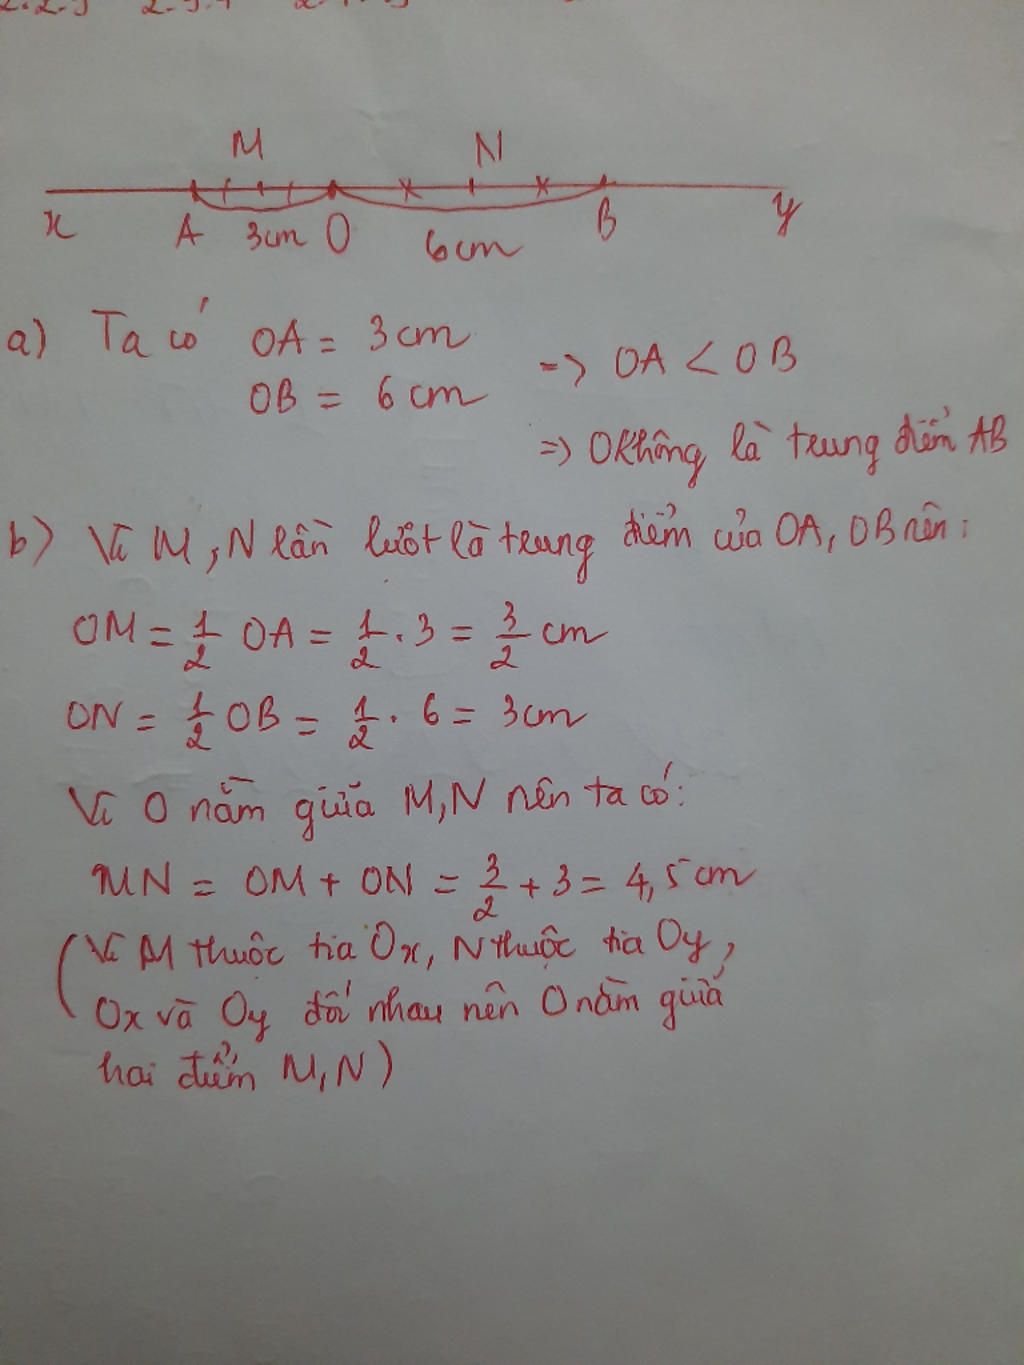 M N
x A 3cm O 6cm B y
a) Ta có OA = 3cm => OA < OB
OB = 6cm
=> O không là trung điểm AB
b) Vì M, N lần lượt là trung điểm của OA, OB nên:
OM = 1/2 OA = 1/2 . 3 = 3/2 cm
ON = 1/2 OB = 1/2 . 6 = 3cm
Vì O nằm giữa M, N nên ta có:
MN = OM + ON = 3/2 + 3 = 4,5cm
(Vì M thuộc tia Ox, N thuộc tia Oy,
Ox và Oy đối nhau nên O nằm giữa
hai điểm M, N)